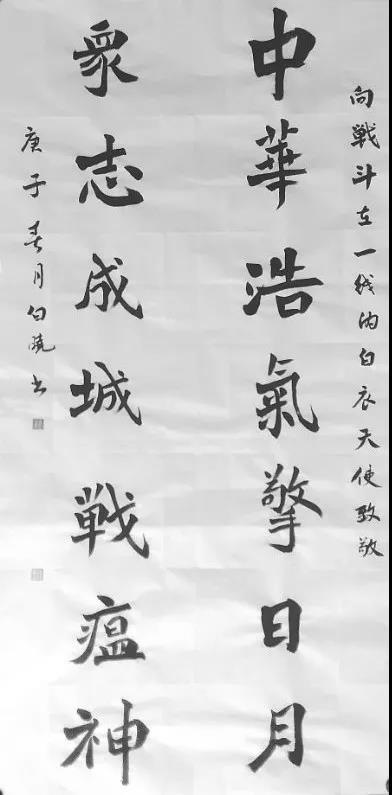 向戦斗在一线的白衣天使致敬
中華浩氣擎日月
衆志成城戦瘟神
庚子春月白曉书